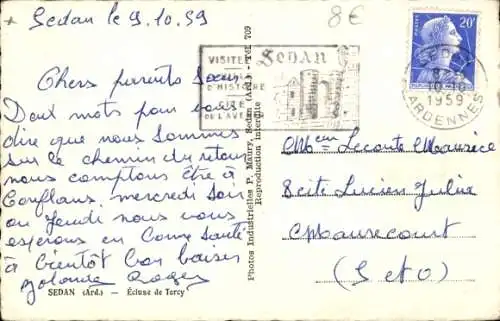 Sedan le 9.10.59
8€
Chers parents Sœur
Deux mots pour vous
dire que nous sommes
sur le chemin du retour
nous comptons être à
Conflans. mercredi soir
ou Jeudi nous vous
espérons en bonne santé
à bientôt bon baiser
Yolande Roger
SEDAN (Ard.) — Écluse de Torcy
Photos Industrielles P. Maury, Sedan (Ard.) - Tél. 709
Reproduction interdite
VISITEZ
SEDAN
D'HISTOIRE
DE L'AVE
POSTES
20F
SEDAN
10-10
1959
ARDENNES
Mr Leconte Maurice
8 cité Lucien Julia
Maurecourt
(S et O)